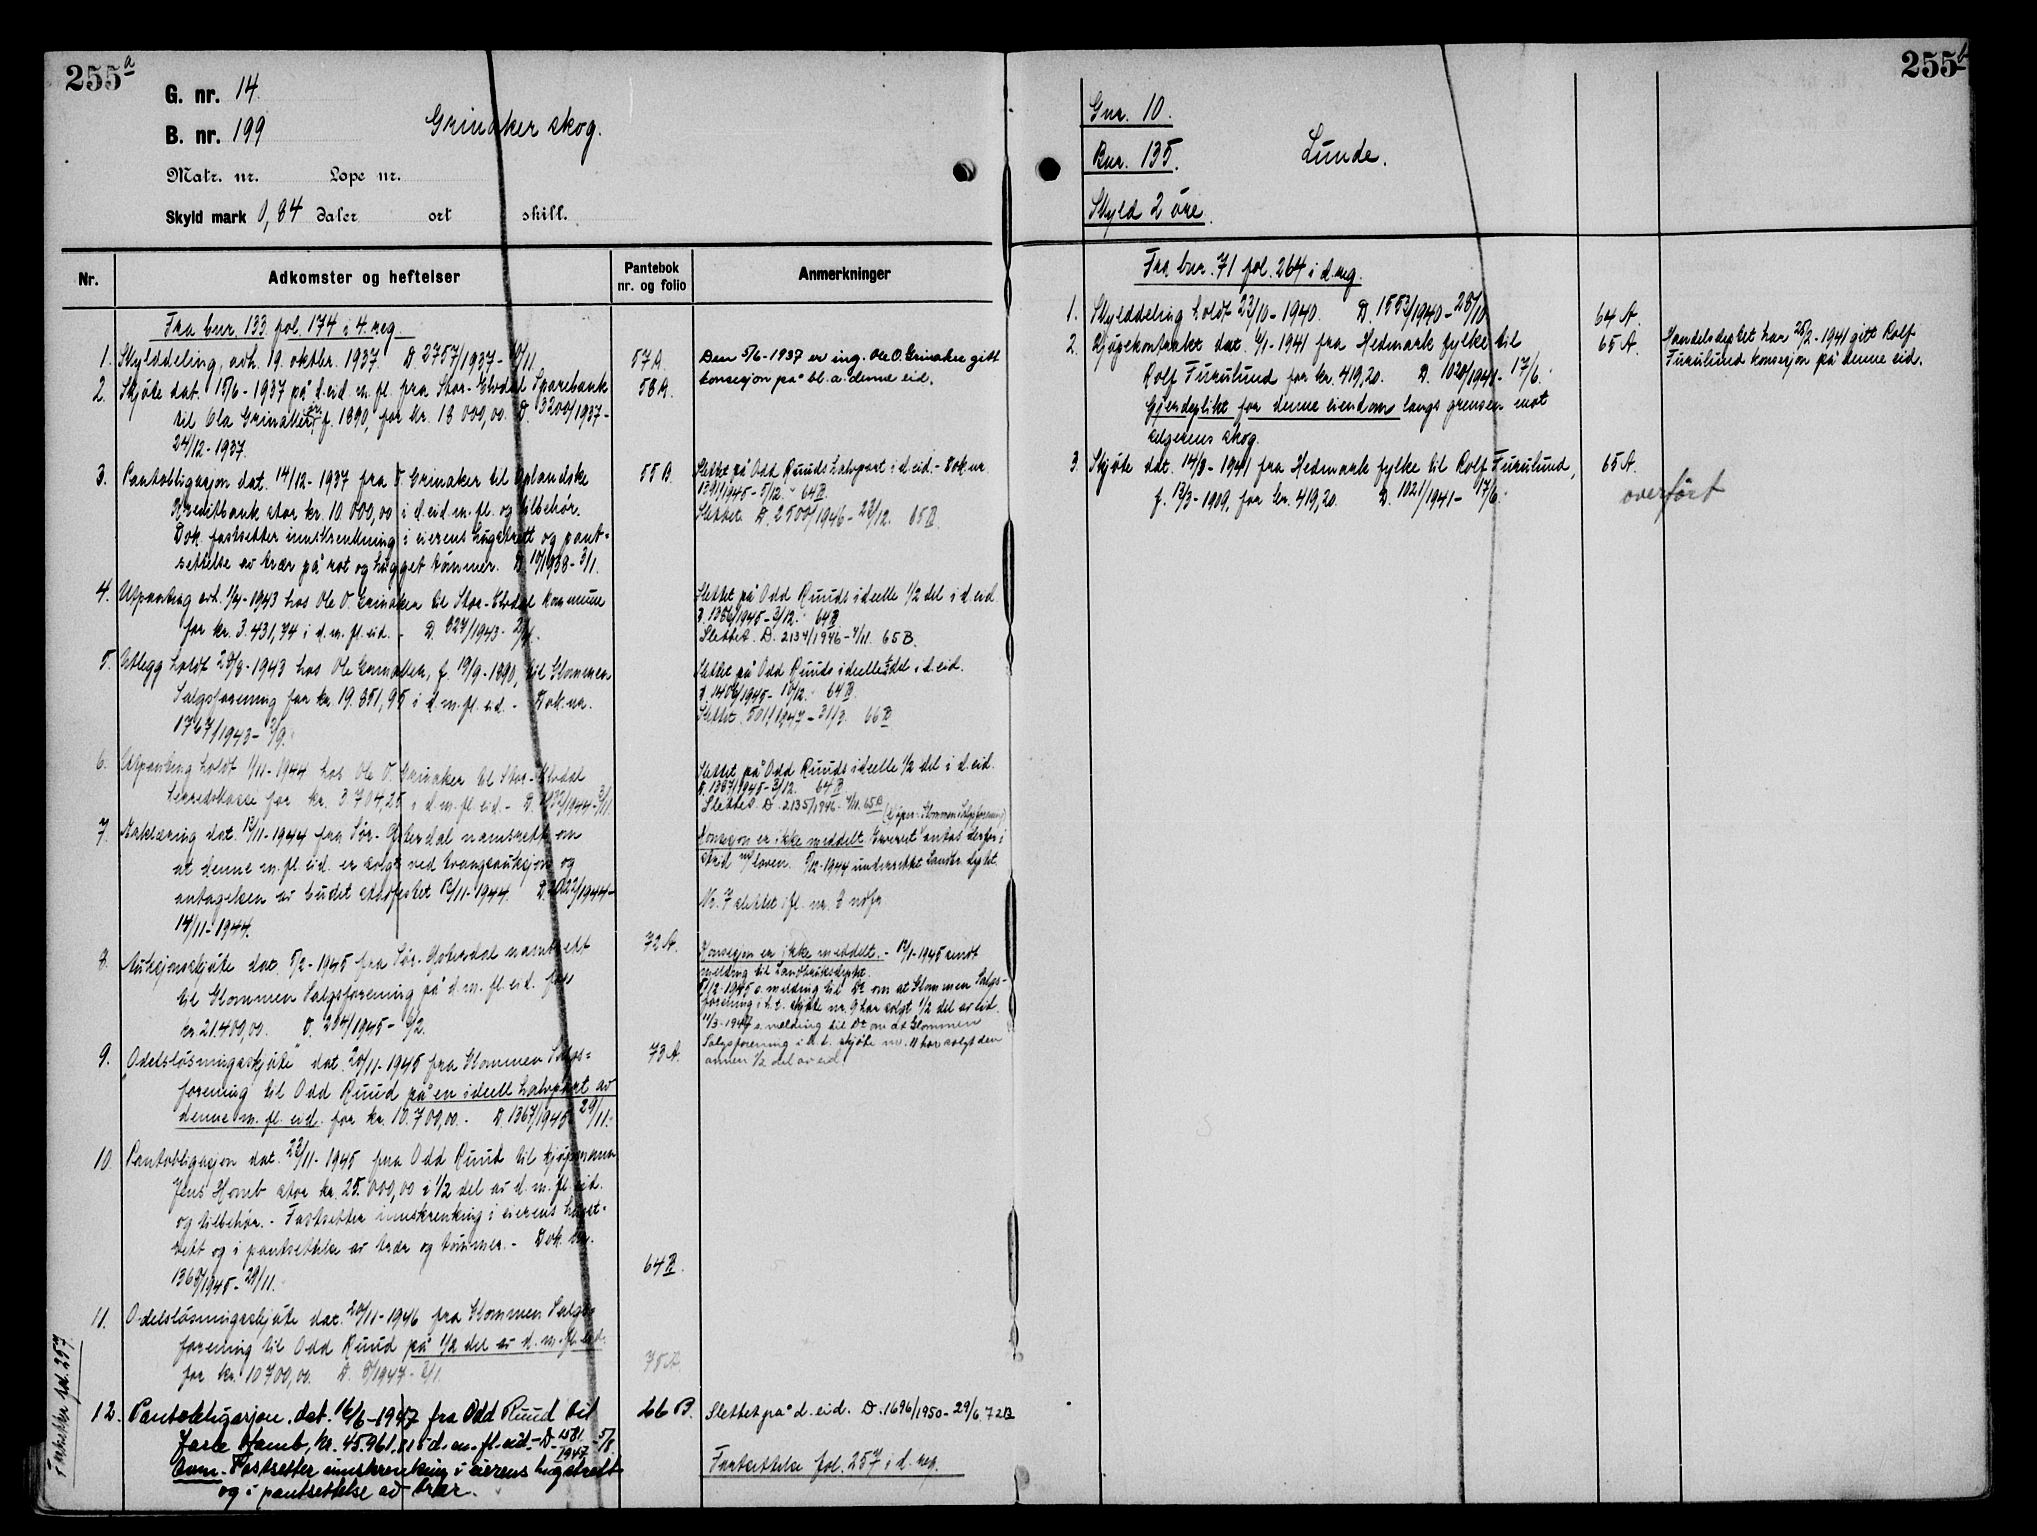 255a
G. nr. 14
B. nr. 199
Grinaker skog.
Matr. nr. Løpe nr.
Skyld mark 0,84 daler ort skill.
Nr. Adkomster og heftelser Pantebok nr. og folio Anmerkninger
Fra bnr. 133 fol. 174 i 4. reg
1. Skylddeling, avh. 19. oktbr. 1937. D 2757/1937 - /11 57A.
2. Skjøte dat. 15/6 - 1937 på d. eid. m. fl. fra Stor-Elvdal Sparebank 58A.
til Ola Grinaker, f. 1890, for kr. 18 000,00. D. 3200/1937 -
24/12 - 1937.
Den 5/6 - 1937 er ing. Ole O. Grinaker gitt
konsesjon på bl. a. denne eid.
3. Pantobligasjon dat. 14/12 - 1937 fra O. Grinaker til Oplandske 55B.
Kreditbank stor kr. 10.000,00 i d. eid. m. fl. og tilbehör.
Dok. fastsetter innskrenkning i eierens hugstrett og pant-
settelse av trær på rot og hugget tömmer. D. 10/1938 - 3/1.
Slettet på Odd Ruuds halvpart i d. eid. - Dok. nr.
1391/1945 - 5/12. 64B.
Slettet. D. 2500/1946 - 23/12. 65B.
4. Utpanting avh. 1/4 - 1943 hos Ole O. Grinaker til Stor-Elvdal kommune
for kr. 3.431,74 i d. m. fl. eid. - D. 627/1943 -
Slettet på Odd Ruuds ideelle 1/2 del i d. eid
D. 1386/1945 - 3/12. 64B
Slettet. D. 2134/1946 - 4/11. 65B.
5. Utlegg holdt 28/8 - 1943 hos Ole Grinaker, f. 19/9 - 1890, til Glommen
Salgsforening for kr. 19.851,95 i d. m. fl. eid. - Dok. nr.
1767/1943 - 2/9.
Slettet på Odd Ruuds ideelle 1/2 del i d. eid.
D. 1406/1945 - 10/12. 64B.
Slettet. 501/1947 - 31/3. 66B
6. Utpanting holdt 1/11 - 1944 hos Ole O. Grinaker til Stor-Elvdal
herredskasse for kr. 3.704,25 i d. m. fl. eid. - D. /1944 - 3/11.
Slettet på Odd Ruuds ideelle 1/2 del i d. eid.
D. 1387/1945 - 3/12. 64B
Slettet. D. 2135/1946 - 4/11. 65B
7. Erklæring dat. 13/11 - 1944 fra Sør-Østerdal namsrett om
at denne m. fl. eid. er solgt ved tvangsauksjon og
antagelsen av budet stadfestet 13/11 - 1944. D. 2022/1944 -
14/11 - 1944.
(Kjøper: Glommen Salgsforening)
Konsesjon er ikke meddelt. Ervervet antas derfor i
strid m/ loven. /12 - 1944 underrettet Landbr. dept.
Nr. 7 slettet ifl. nr. 8 ndfr
8. Auksjonsskjøte dat. 5/2 - 1945 fra Sør-Østerdal namsrett 72A.
til Glommen Salgsforening på d. m. fl. eid. for
kr. 21.400,00. D. 234/1945 - 6/2.
Konsesjon er ikke meddelt. - 13/1 - 1945 sendt
melding til Landbruksdeptet.
/12 1945 s. melding til Do om at Glommen Salgs-
forening i h. t. skjøte nr. 9 har solgt 1/2 del av eid.
11/3 - 1947 s. melding til Do om at Glommen
Salgsforening i h. t. skjöte nr. 11 har solgt den
annen 1/2 del av eid.
9. "Odelsløsningsskjøte" dat. 20/11 - 1945 fra Glommen Salgs- 73A.
forening til Odd Ruud på en ideell halvpart av
denne m. fl. eid. for kr. 10.700,00. - D. 1367/1945 - 29/11.
10. Pantobligasjon dat. 23/11 - 1945 fra Odd Ruud til kjøpmann
Jens Homb stor kr. 25.000,00 i 1/2 del av d. m. fl. eid.
og tilbehör. - Fastsetter innskrenking i eierens hugst-
rett og i pantsettelse av trær og tömmer. - Dok. nr.
1368/1945 - 29/11. 64B.
11. Odelsløsningsskjøte dat. 20/11 - 1946 fra Glommen Salgs-
forening til Odd Ruud på 1/2 del av d. m. fl. eid.
for kr. 10700,00. D. 8/1947 - 2/1. 75A.
12. Pantobligasjon dat. 16/6 - 1947 fra Odd Ruud til 66B.
Jarle Homb, kr. 45.961, i d. m. fl. eid. - D. 1581/1947 - 5/8.
Anm. Fastsetter innskrenking i eierens hugstrett
og i pantsettelse av trær.
Slettet på d. eid. D. 1696/1950 - 29/6. 72B
Fortsettelse fol. 257 i d. reg.
Fortsetter fol. 257.
255b
Gnr. 10.
Bnr. 135.
Lunde.
Skyld 2 öre.
Fra bnr. 71 fol. 264 i d. reg.
1. Skylddeling holdt 23/10 - 1940. D. 1553/1940 - 28/10 64A.
2. Kjøpekontrakt dat. 6/1 - 1941 fra Hedmark fylke til 65A.
Rolf Furulund for kr. 419,20. D. 1020/1941 - 17/6.
Gjerdeplikt for denne eiendom langs grensen mot
selgerens skog.
Handelsdeptet har 25/2 - 1941 gitt Rolf
Furulund konsesjon på denne eid.
3. Skjøte dat. 14/3 - 1941 fra Hedmark fylke til Rolf Furulund, 65A.
f. 13/3 - 1909, for kr. 419,20. D. 1021/1941 - 17/6.
overført